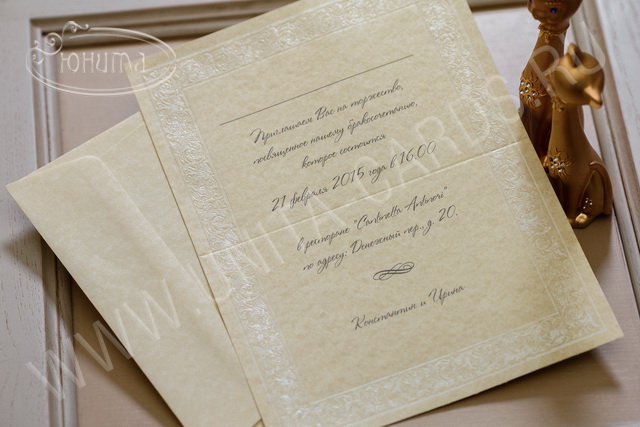 Юнита
Приглашаем Вас на торжество,
посвященное нашему бракосочетанию,
которое состоится
21 февраля 2015 года в 16.00
в ресторане "Cantinetta Antinori"
по адресу: Денежный пер., д. 20.
Константин и Ирина
WWW.UNITA-CARDS.RU